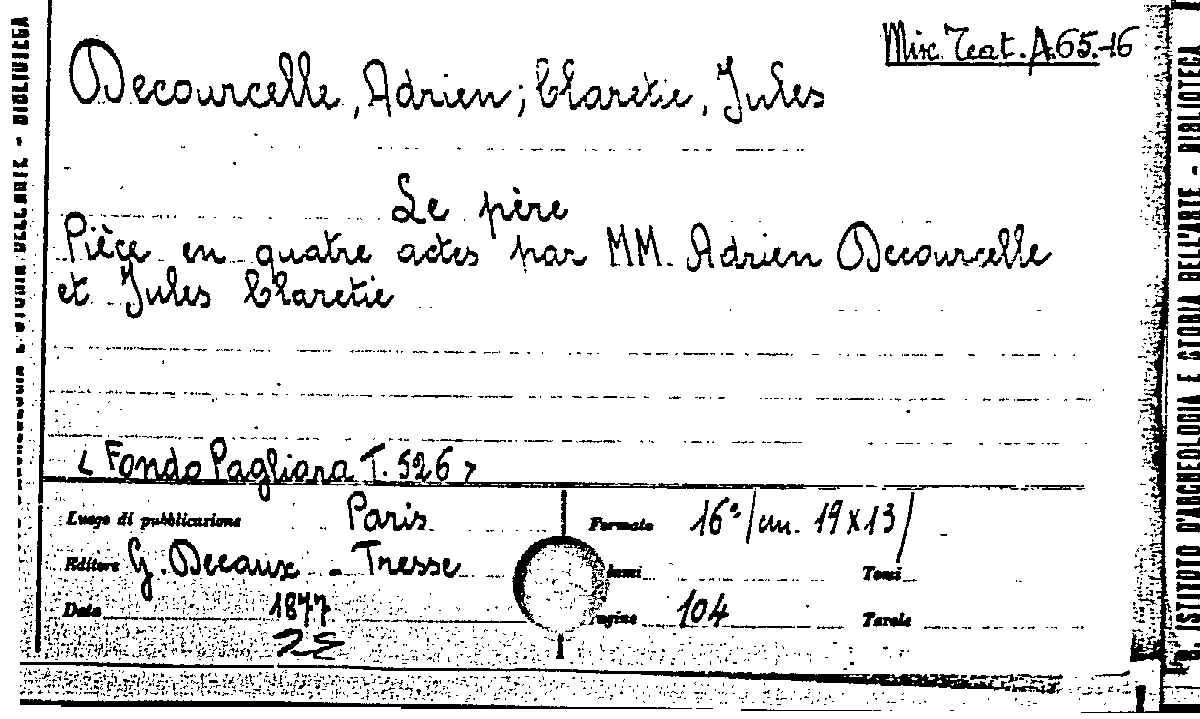 Misc. Teat. A.65.-16
Decourcelle, Adrien; Claretie, Jules
Le père
Pièce en quatre actes par MM. Adrien Decourcelle
et Jules Claretie
< Fondo Pagliara T. 526 >
Luogo di pubblicazione Paris Formato 16°/cm. 19x13/
Editore G. Decaux - Tresse lumi Tomi
Data 1877 agine 104 Tavole
R. ISTITUTO D'ARCHEOLOGIA E STORIA DELL'ARTE - BIBLIOTECA